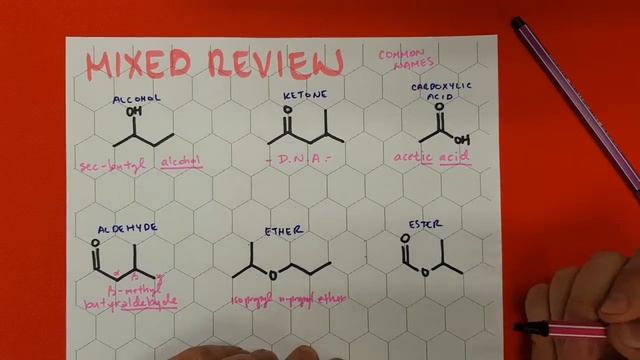 MIXED REVIEW
COMMON
NAMES
ALCOHOL
OH
sec-butyl alcohol
KETONE
O
- D.N.A -
CARBOXYLIC
ACID
O
OH
acetic acid
ALDEHYDE
O
α β γ
β-methyl
butyraldehyde
ETHER
O
isopropyl n-propyl ether
ESTER
O
O